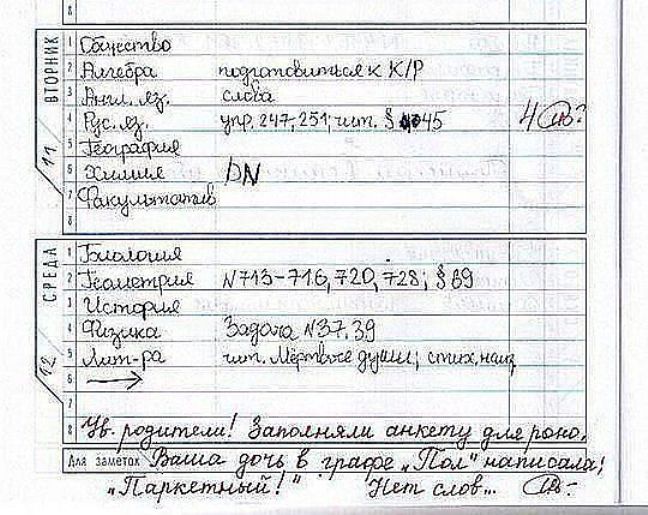 8
ВТОРНИК
11
1 Общество
2 Алгебра подготовиться к К/Р
3 Англ. яз. слова
4 Рус. яз. упр. 247, 251; чит. § 45 4
5 География
6 Химия DN
7 Факультатив
8
СРЕДА
12
1 Биология
2 Геометрия N713-716, 720, 728; § 89
3 История
4 Физика Задача N37, 39
5 Лит-ра чит. Мёртвые души; стих. наиз
6
7
8 Ув. родители! Заполняли анкету для роно,
Для заметок Ваша дочь в графе „Пол" написала;
„Паркетный!" Нет слов...